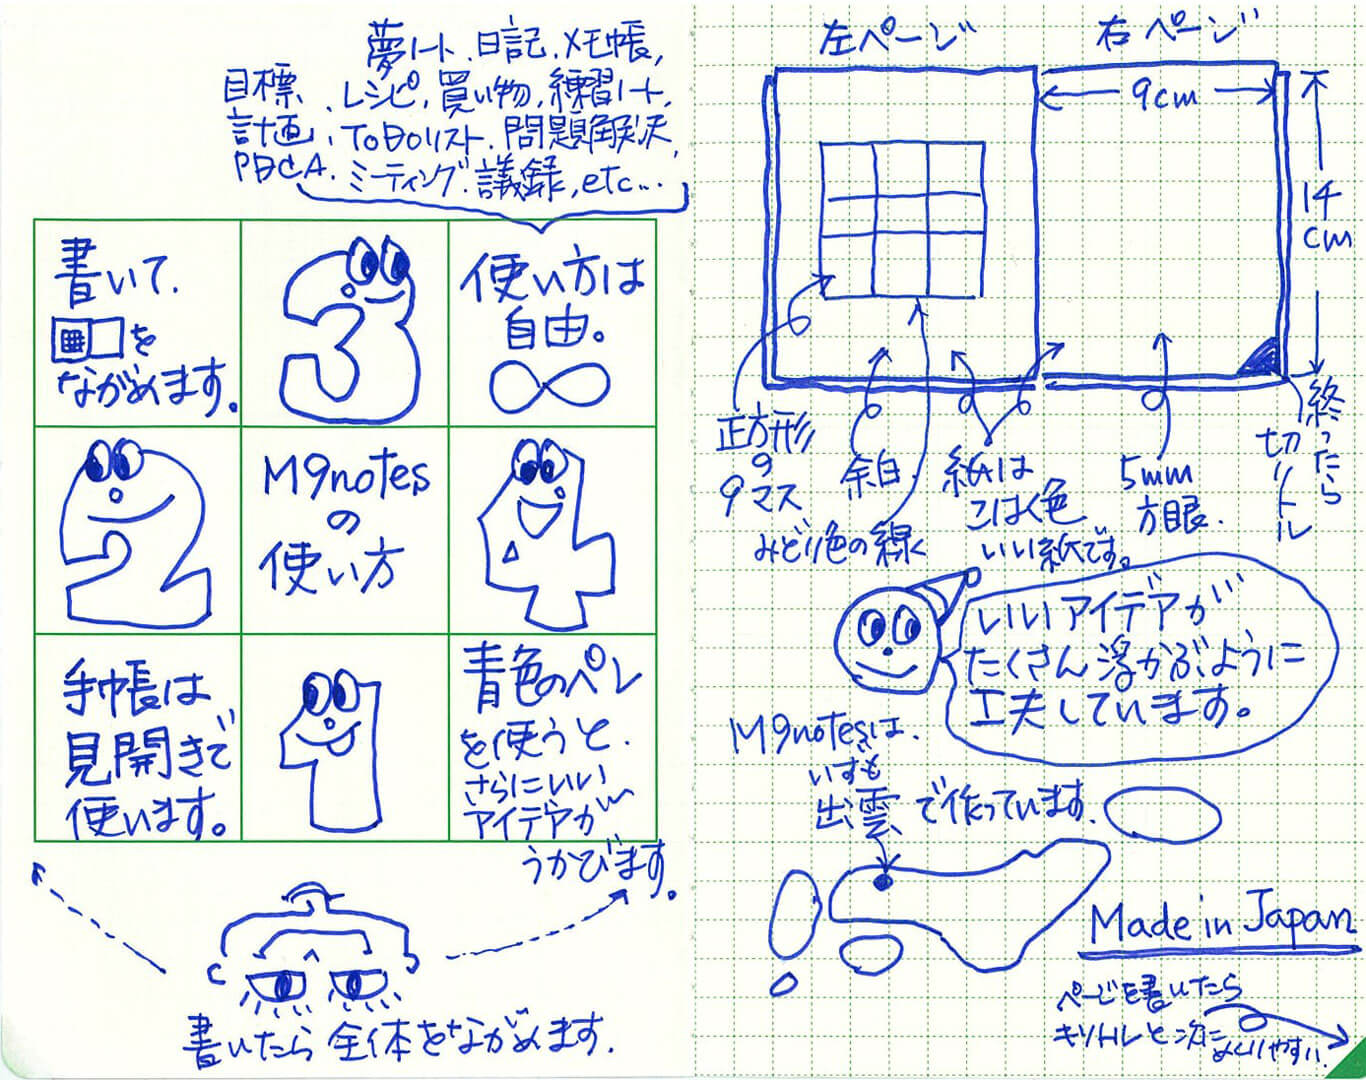 夢ノート、日記、メモ帳,
目標、レシピ,買い物,練習ノート,
計画,ToDoリスト、問題解決,
PDCA、ミーティング、議録,etc...
書いて、
を
ながめます。
3
使い方は
自由。
∞
2
M9notes
の
使い方
4
手帳は
見開きで
使います。
1
青色のペン
を使うと、
さらにいい
アイデアが
うかびます。
書いたら全体をながめます.
左ページ
右ページ
9cm
14
cm
正方形
9
マス
余白.
みどり色の線
紙は
こはく色
いい紙です。
5mm
方眼.
終ったら
切りトル
いいアイデアが
たくさん浮かぶように
工夫しています。
M9notesは、
いずも
出雲で作っています.
Made in Japan
ページを書いたら
キリトルと次に
めくりやすい.